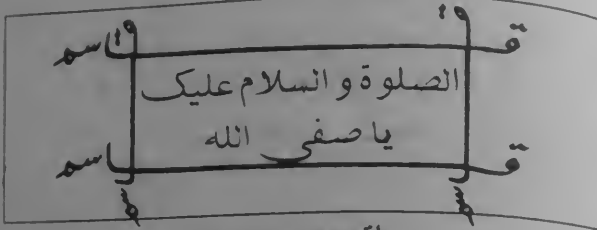 قاسم
الصلوة و السلام علیک
یا صفی الله
قاسم